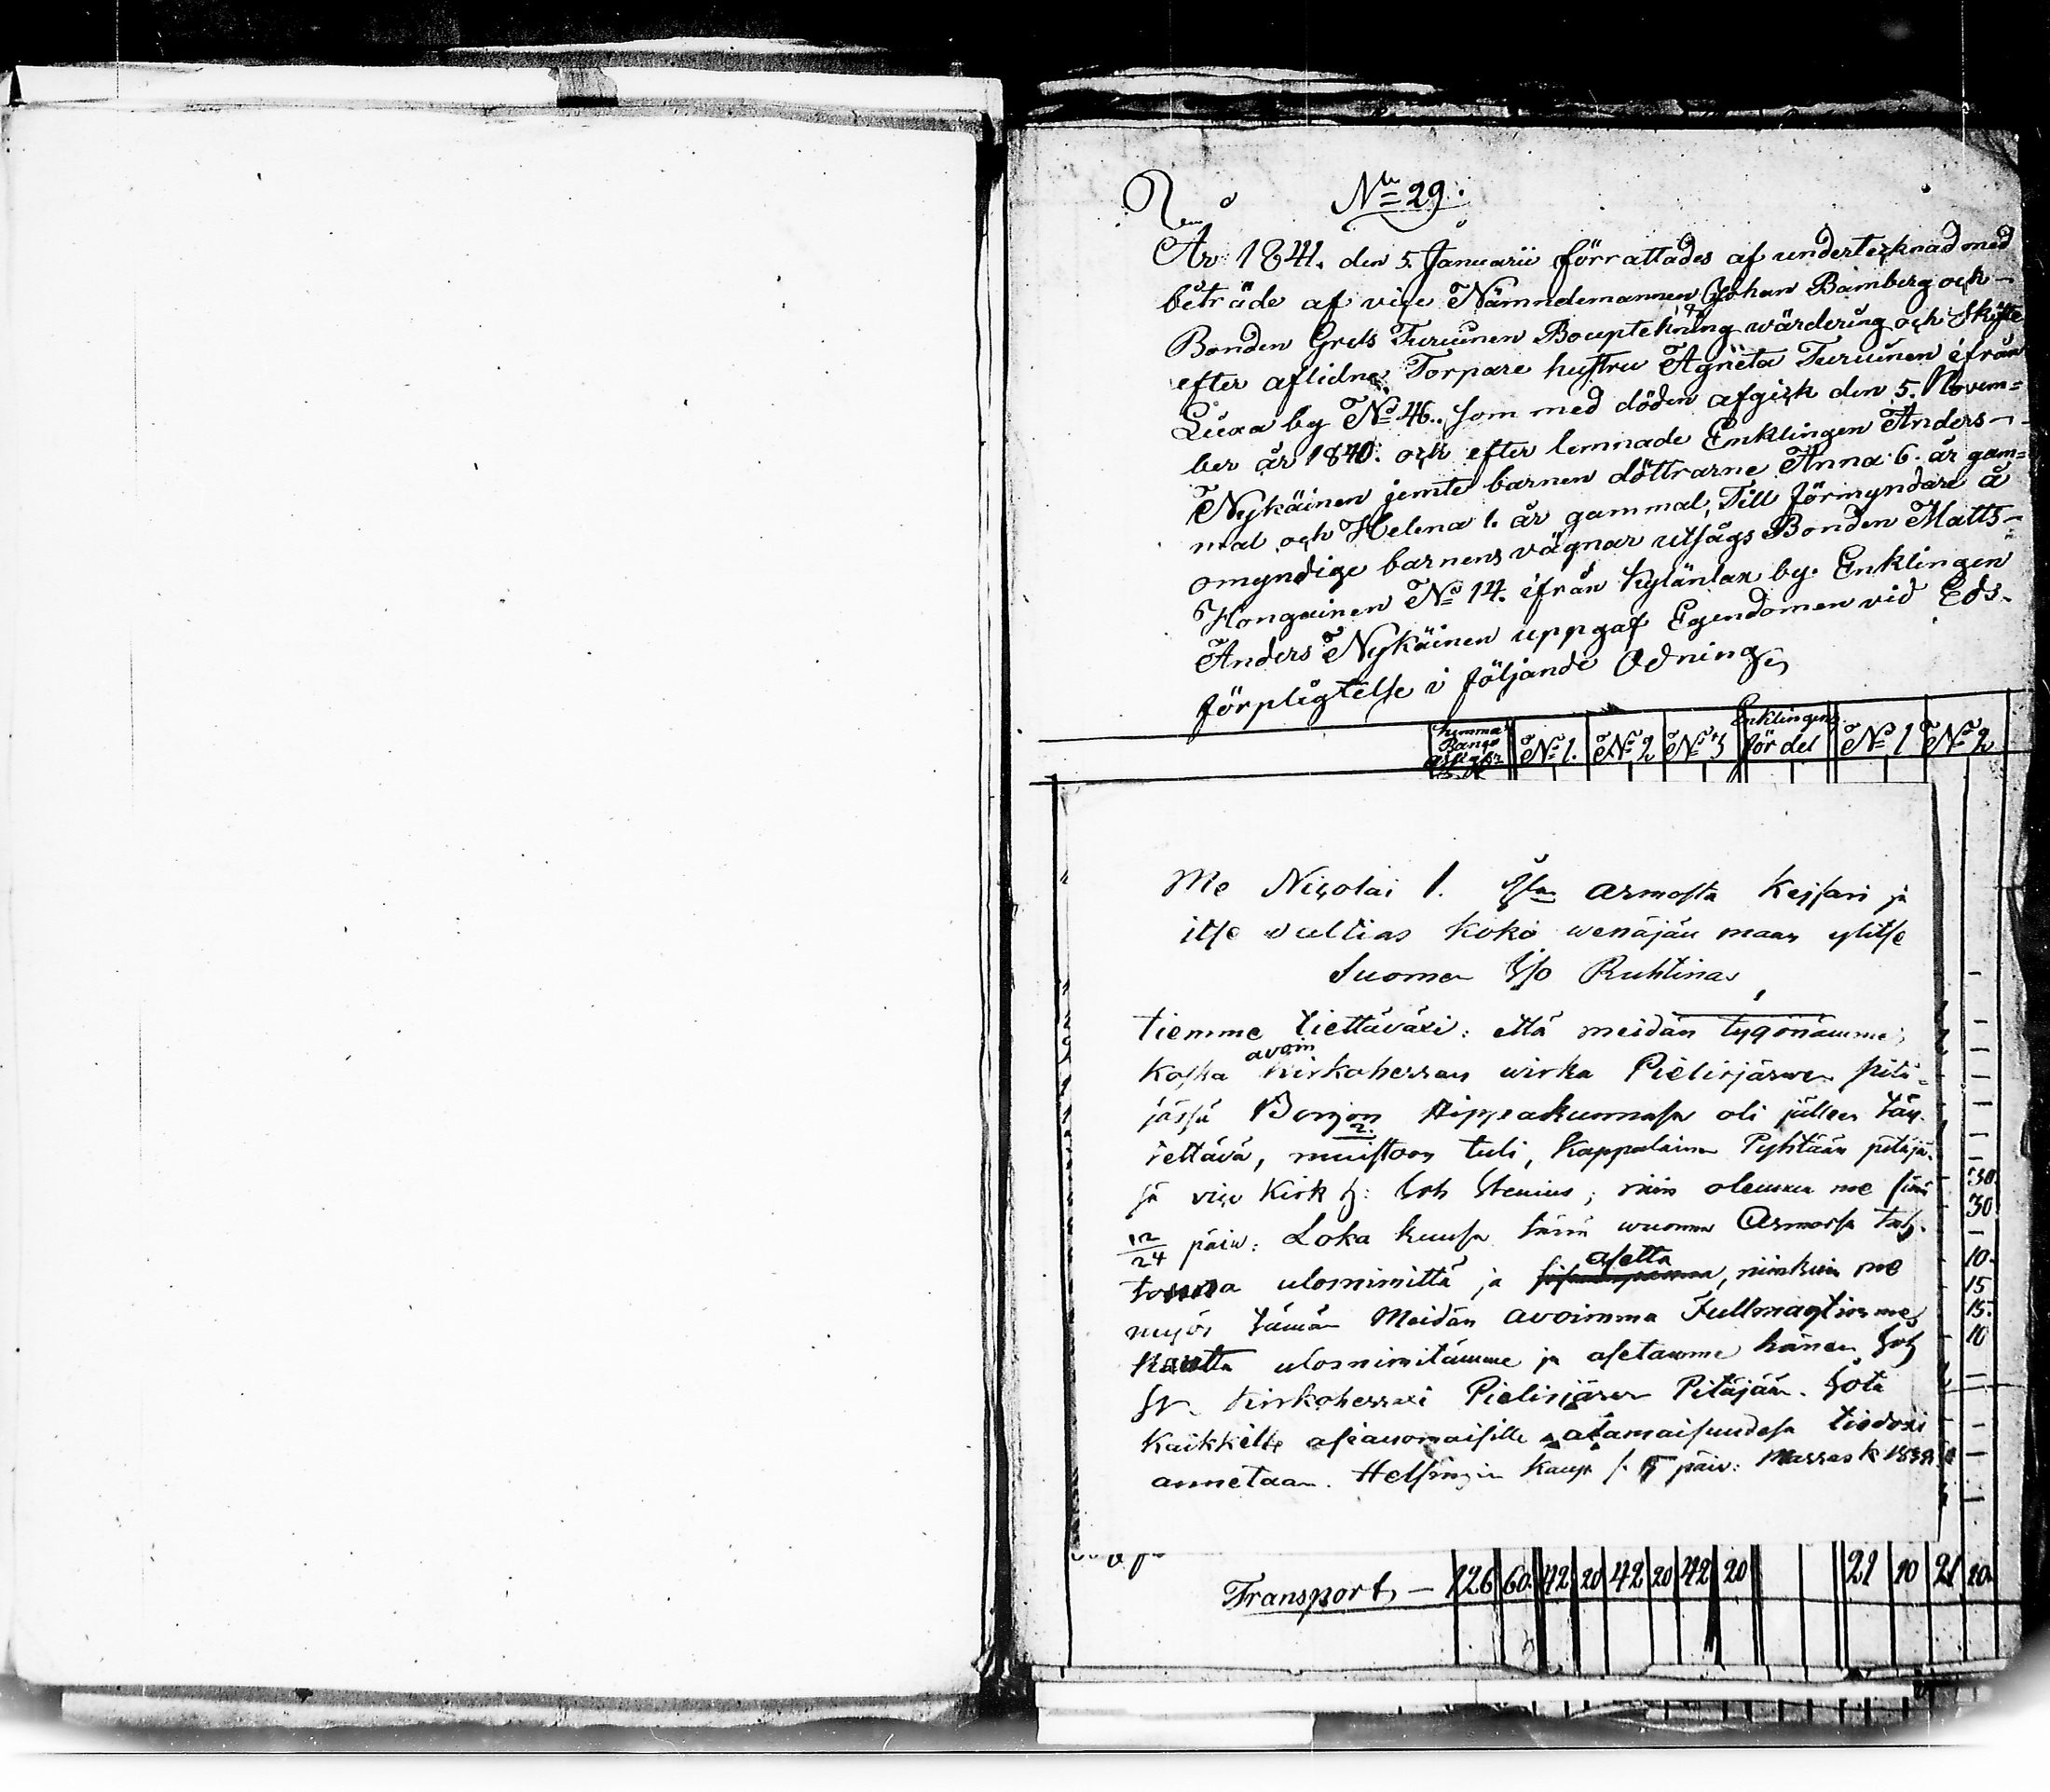 Nº 29.
År 1841. den 5. Januarii förrattades af undertecknad med
beträde af vice Nämndemannen Johan Bamberg och
Bonden Grels Turuinen Bouptekning wärdering och Skifte
efter aflidne Torpare hustru Agneta Turuinen ifrån
Luxa by Nº 46. som med döden afgick den 5. Novem=
ber år 1840. och efter lemnade Enklingen Anders
Nykäinen jemte barnen döttrarne Anna 6. år gam=
mal och Helena 1. år gammal, Till förmyndare å
omyndige barnens vägnar utsågs Bonden Matts
Hongainen Nº 14. ifrån Kylänlax by. Enklingen
Anders Nykäinen uppgaf Egendomen vid Eds-
förpligtelse i följande Odning
Summa Nº 1. Nº 2 Nº 3 Enklingens fördel Nº 1 Nº 2
Me Nicolai 1. armosta Kejsari ja
itse valtias koko wenäjän maan ylitse
Suomen Iso Ruhtinas
tiemme tiettäväxi: että meidän tygönämme,
koska avoin kirkoherran wirka Pielisjärwen pitä=
jässä Borgon Hippakunnassa oli jälleen täy-
tettävä, muistoon tuli, Kappalainen Pyhtään pitäjä-
sä vice Kirk h: Joh Stenius; niin olemme me
12/24 päiw: Loka kuusa tänä wuonna Armossa tah-
tonna ulosnimittä ja asetta, niinkuin me
myös tämän Meidän avoimma Fullmagtimme
kautta ulosnimitämme ja asetamme hänen Joh
St. kirkoherraxi Pielisjärwen Pitäjään. Jota
kaikkille asianomaisille alamaisuudesa tiedoxi
annetaan. Helsingin kaup päiv: Marras k
30
30
10.
15
15.
10
Transport — 126 60. 42 20 42 20 42 20 21 10 21 10